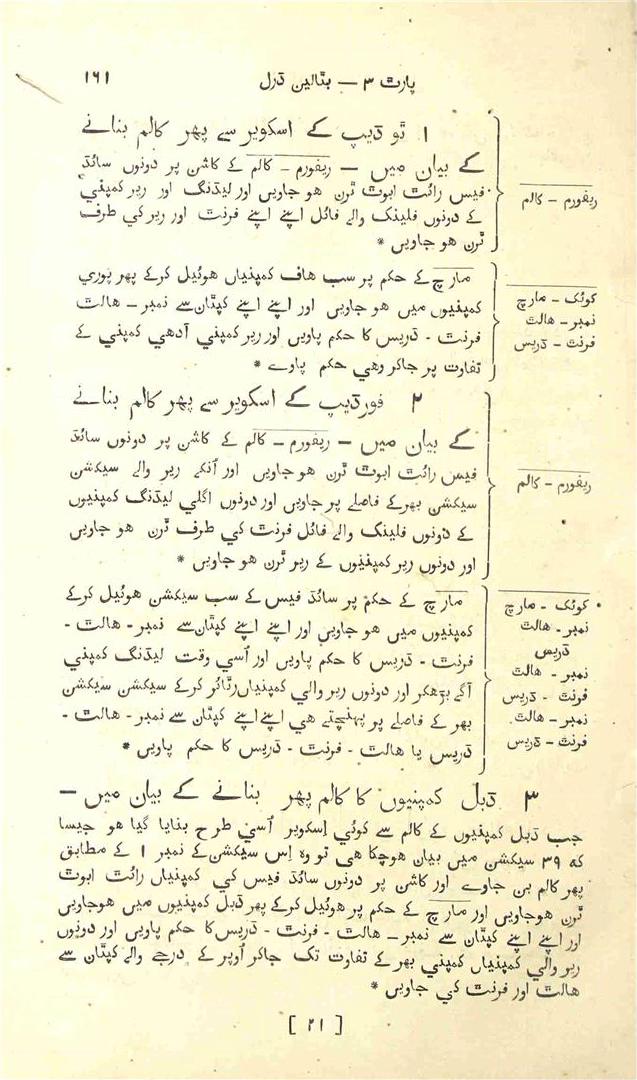 پارٹ ۳ — بٹالین ڈرل ۱۶۱
۱ ٹو ڈیپ کے اسکویر سے پھر کالم بنانے
کے بیان میں — ریفورم - کالم کے کاشن پر دونوں سائڈ
فیس رائٹ ابوٹ ٹرن ھو جاویں اور لیڈنگ اور ریر کمپنی
کے دونوں فلینک والے فائل اپنے اپنے فرنٹ اور ریر کي طرف
ٹرن ھو جاویں *
ریفورم - کالم
مارچ کے حکم پر سب ھاف کمپنیاں ھوئیل کرکے پھر پوري
کمپنیوں میں ھو جاویں اور اپنے اپنے کپتان سے نمبر - ھالٹ
فرنٹ - ڈریس کا حکم پاویں اور ریر کمپني آدھي کمپني کے
تفاوت پر جاکر وھي حکم پاوے *
کوئک - مارچ
نمبر - ھالٹ
فرنٹ - ڈریس
۲ فور ڈیپ کے اسکویر سے پھر کالم بنانے
کے بیان میں — ریفورم - کالم کے کاشن پر دونوں سائڈ
فیس رائٹ ابوٹ ٹرن ھو جاویں اور اُنکے ریر والے سیکشن
سیکشن بھر کے فاصلے پر جاویں اور دونوں اگلي لیڈنگ کمپنیوں
کے دونوں فلینک والے فائل فرنٹ کي طرف ٹرن ھو جاویں
اور دونوں ریر کمپنیوں کے ریر ٹرن ھو جاویں *
ریفورم - کالم
مارچ کے حکم پر سائڈ فیس کے سب سیکشن ھوئیل کرکے
کمپنیوں میں ھو جاویں اور اپنے اپنے کپتان سے نمبر - ھالٹ -
فرنٹ - ڈریس کا حکم پاویں اور اُسي وقت لیڈنگ کمپني
آگے بڑھکر اور دونوں ریر والي کمپنیاں رٹائر کرکے سیکشن سیکشن
بھر کے فاصلے پر پہنچتے ھي اپنے اپنے کپتان سے نمبر - ھالٹ -
ڈریس یا ھالٹ - فرنٹ - ڈریس کا حکم پاویں *
کوئک - مارچ
نمبر - ھالٹ
ڈریس
نمبر - ھالٹ
فرنٹ - ڈریس
نمبر - ھالٹ
فرنٹ - ڈریس
۳ ڈبل کمپنیوں کا کالم پھر بنانے کے بیان میں —
جب ڈبل کمپنیوں کے کالم سے کوئي اِسکویر اُسي طرح بنایا گیا ھو جیسا
که ۳۹ سیکشن میں بیان ھوچکا ھی تو وہ اِس سیکشن کے نمبر ۱ کے مطابق
پھر کالم بن جاوے اور کاشن پر دونوں سائڈ فیس کي کمپنیاں رائٹ ابوٹ
ٹرن ھوجاویں اور مارچ کے حکم پر ھوئیل کرکے پھر ڈبل کمپنیوں میں ھوجاویں
اور اپنے اپنے کپتان سے نمبر - ھالٹ - فرنٹ - ڈریس کا حکم پاویں اور دونوں
ریر والي کمپنیاں کمپني بھر کے تفاوت تک جاکر اُوپر کے درجے والے کپتان سے
ھالٹ اور فرنٹ کي جاویں *
[ ۲۱ ]